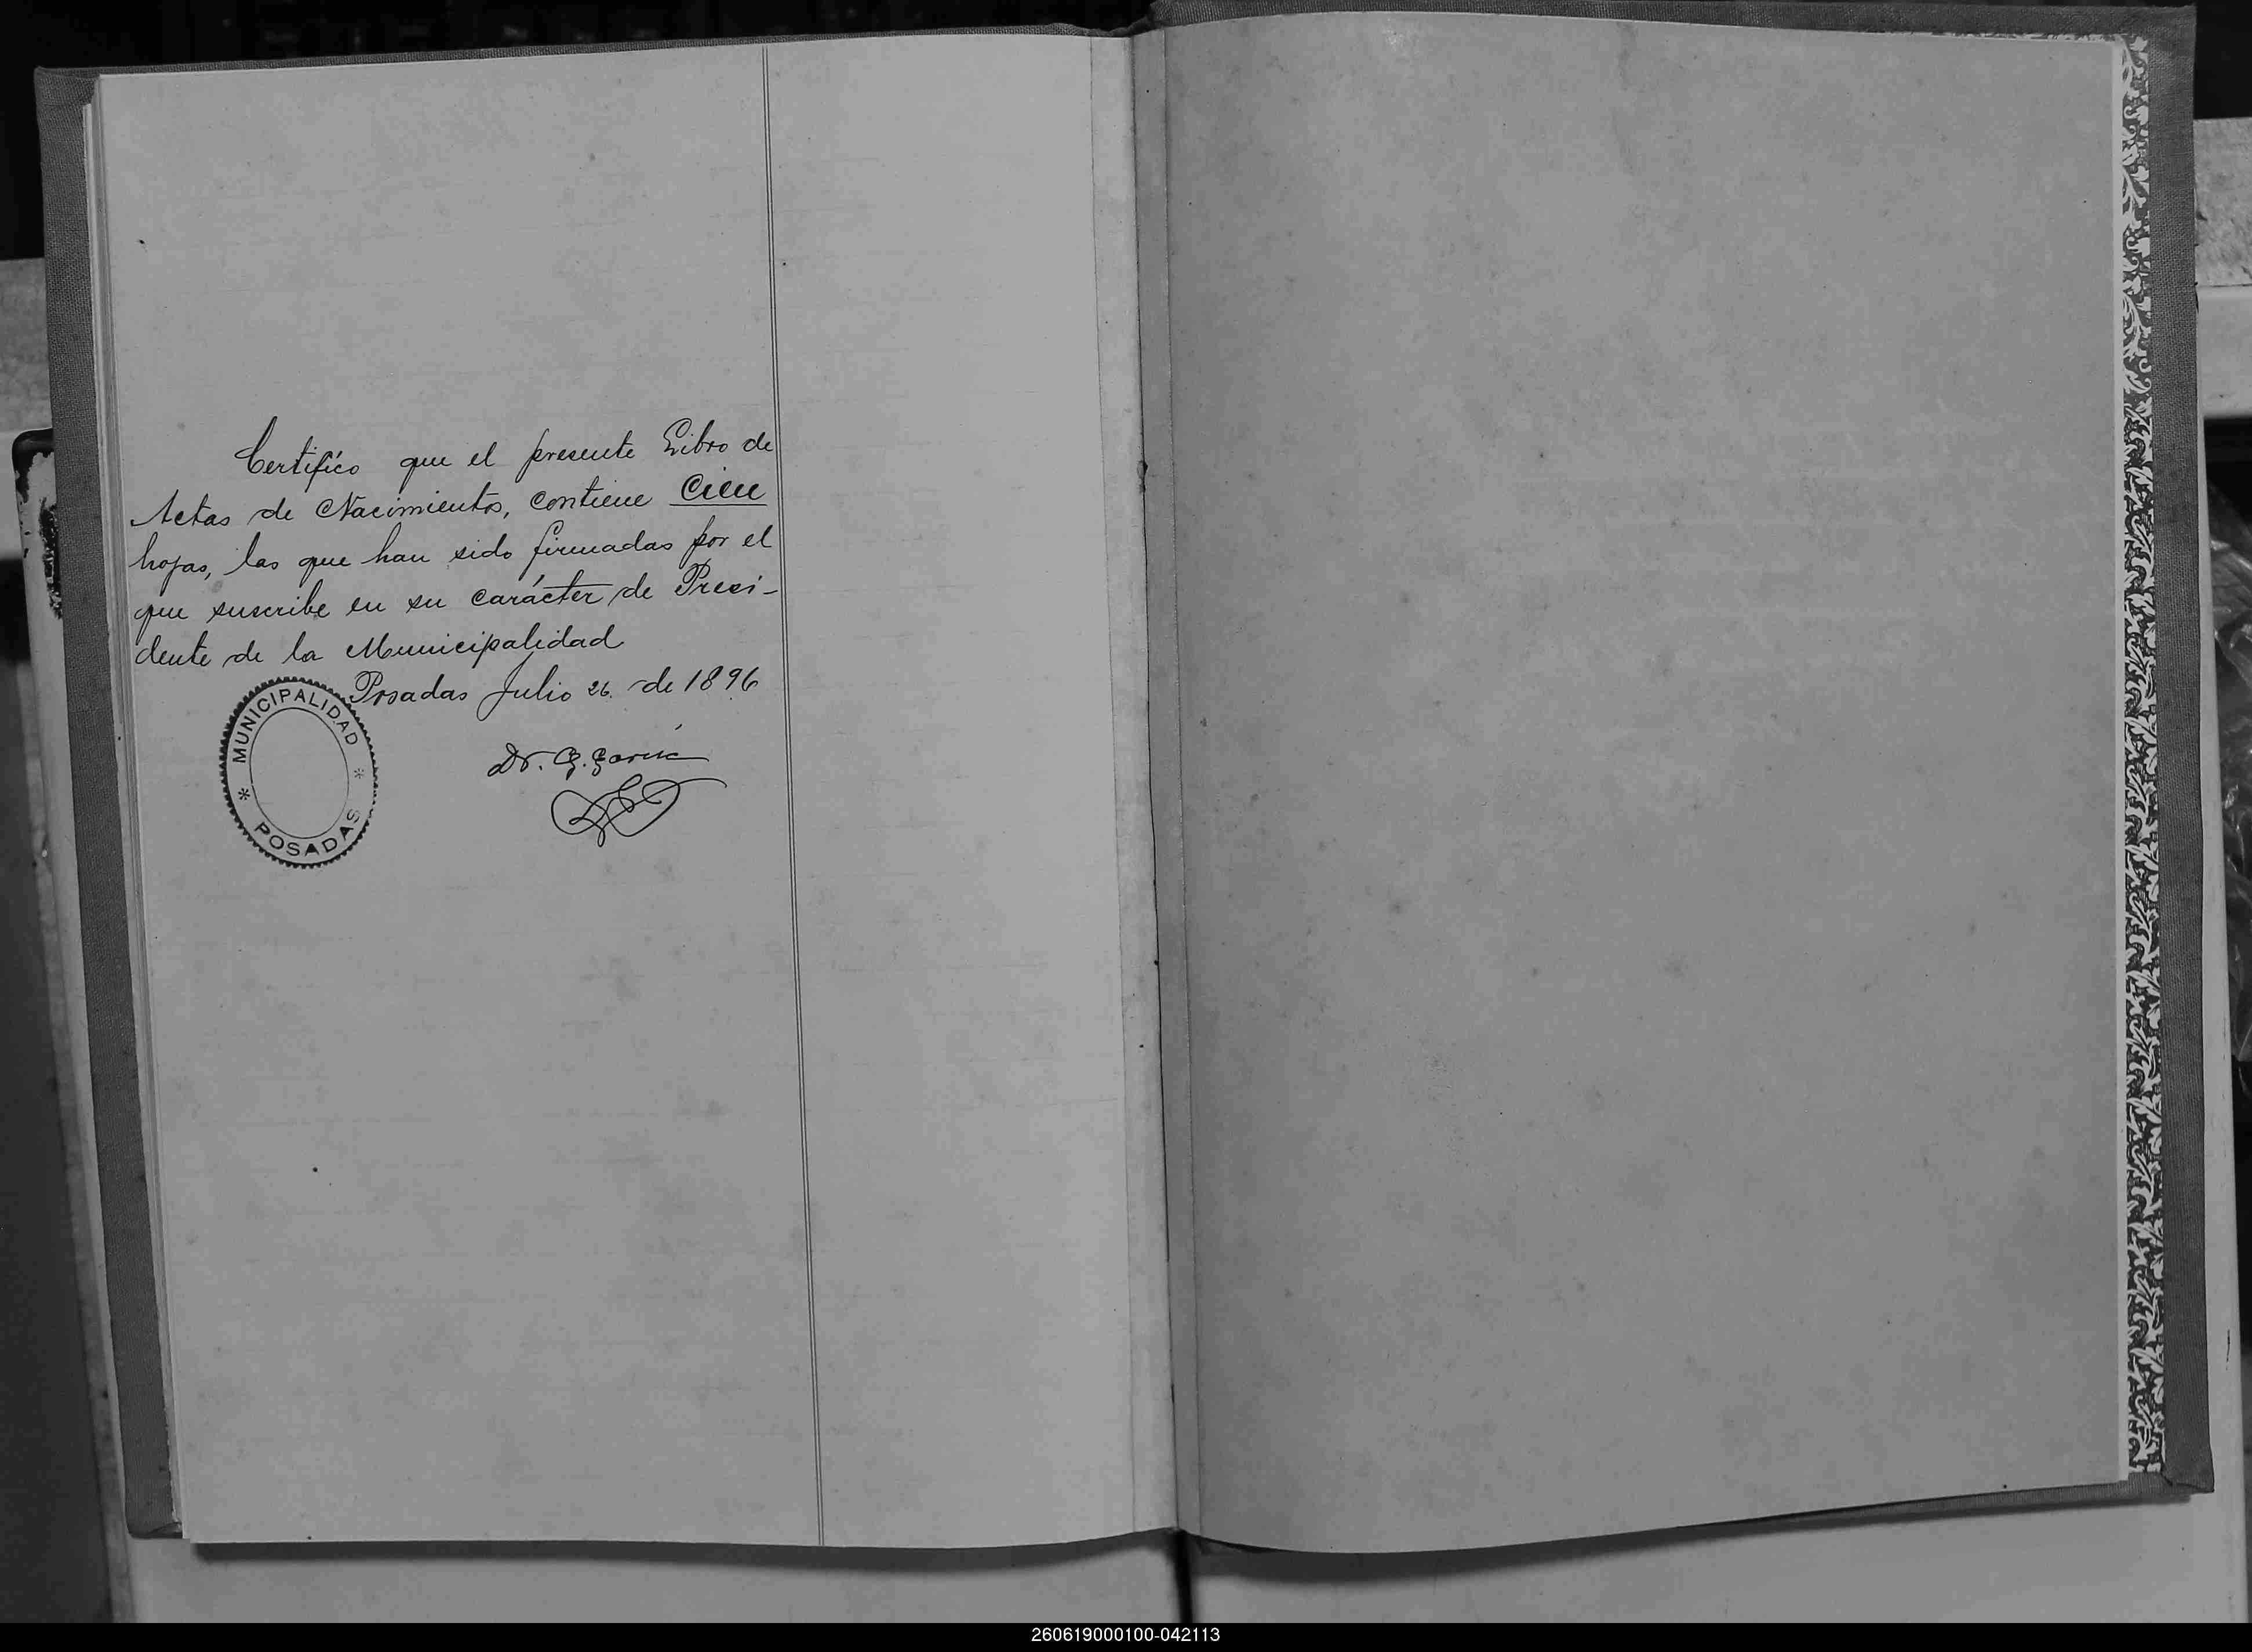 Certifico que el presente Libro de
Actas de Nacimientos, contiene Cien
hojas, las que han sido firmadas por el
que suscribe en su carácter de Presi-
dente de la Municipalidad
Posadas Julio 26. de 1896
MUNICIPALIDAD
* *
POSADAS
Dr. G. García
260619000100-042113